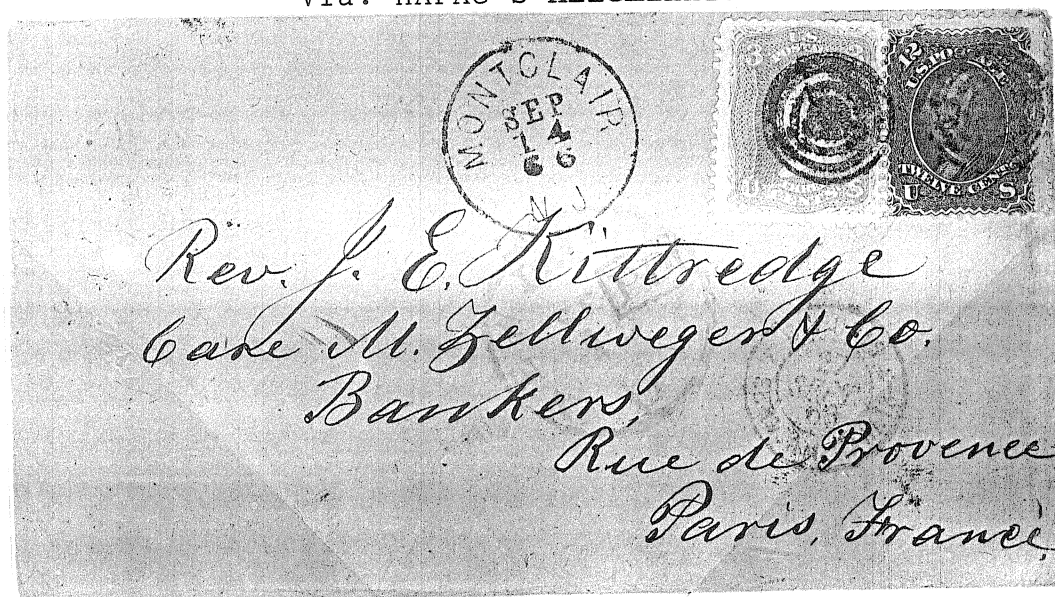 MONTCLAIR
SEP
14
66
N J
3 U.S. 3
12 12
U.S. POSTAGE
TWELVE CENTS
U S
Rev. J. E. Kittredge
Care M. Zellweger & Co.
Bankers,
Rue de Provence
Paris, France.